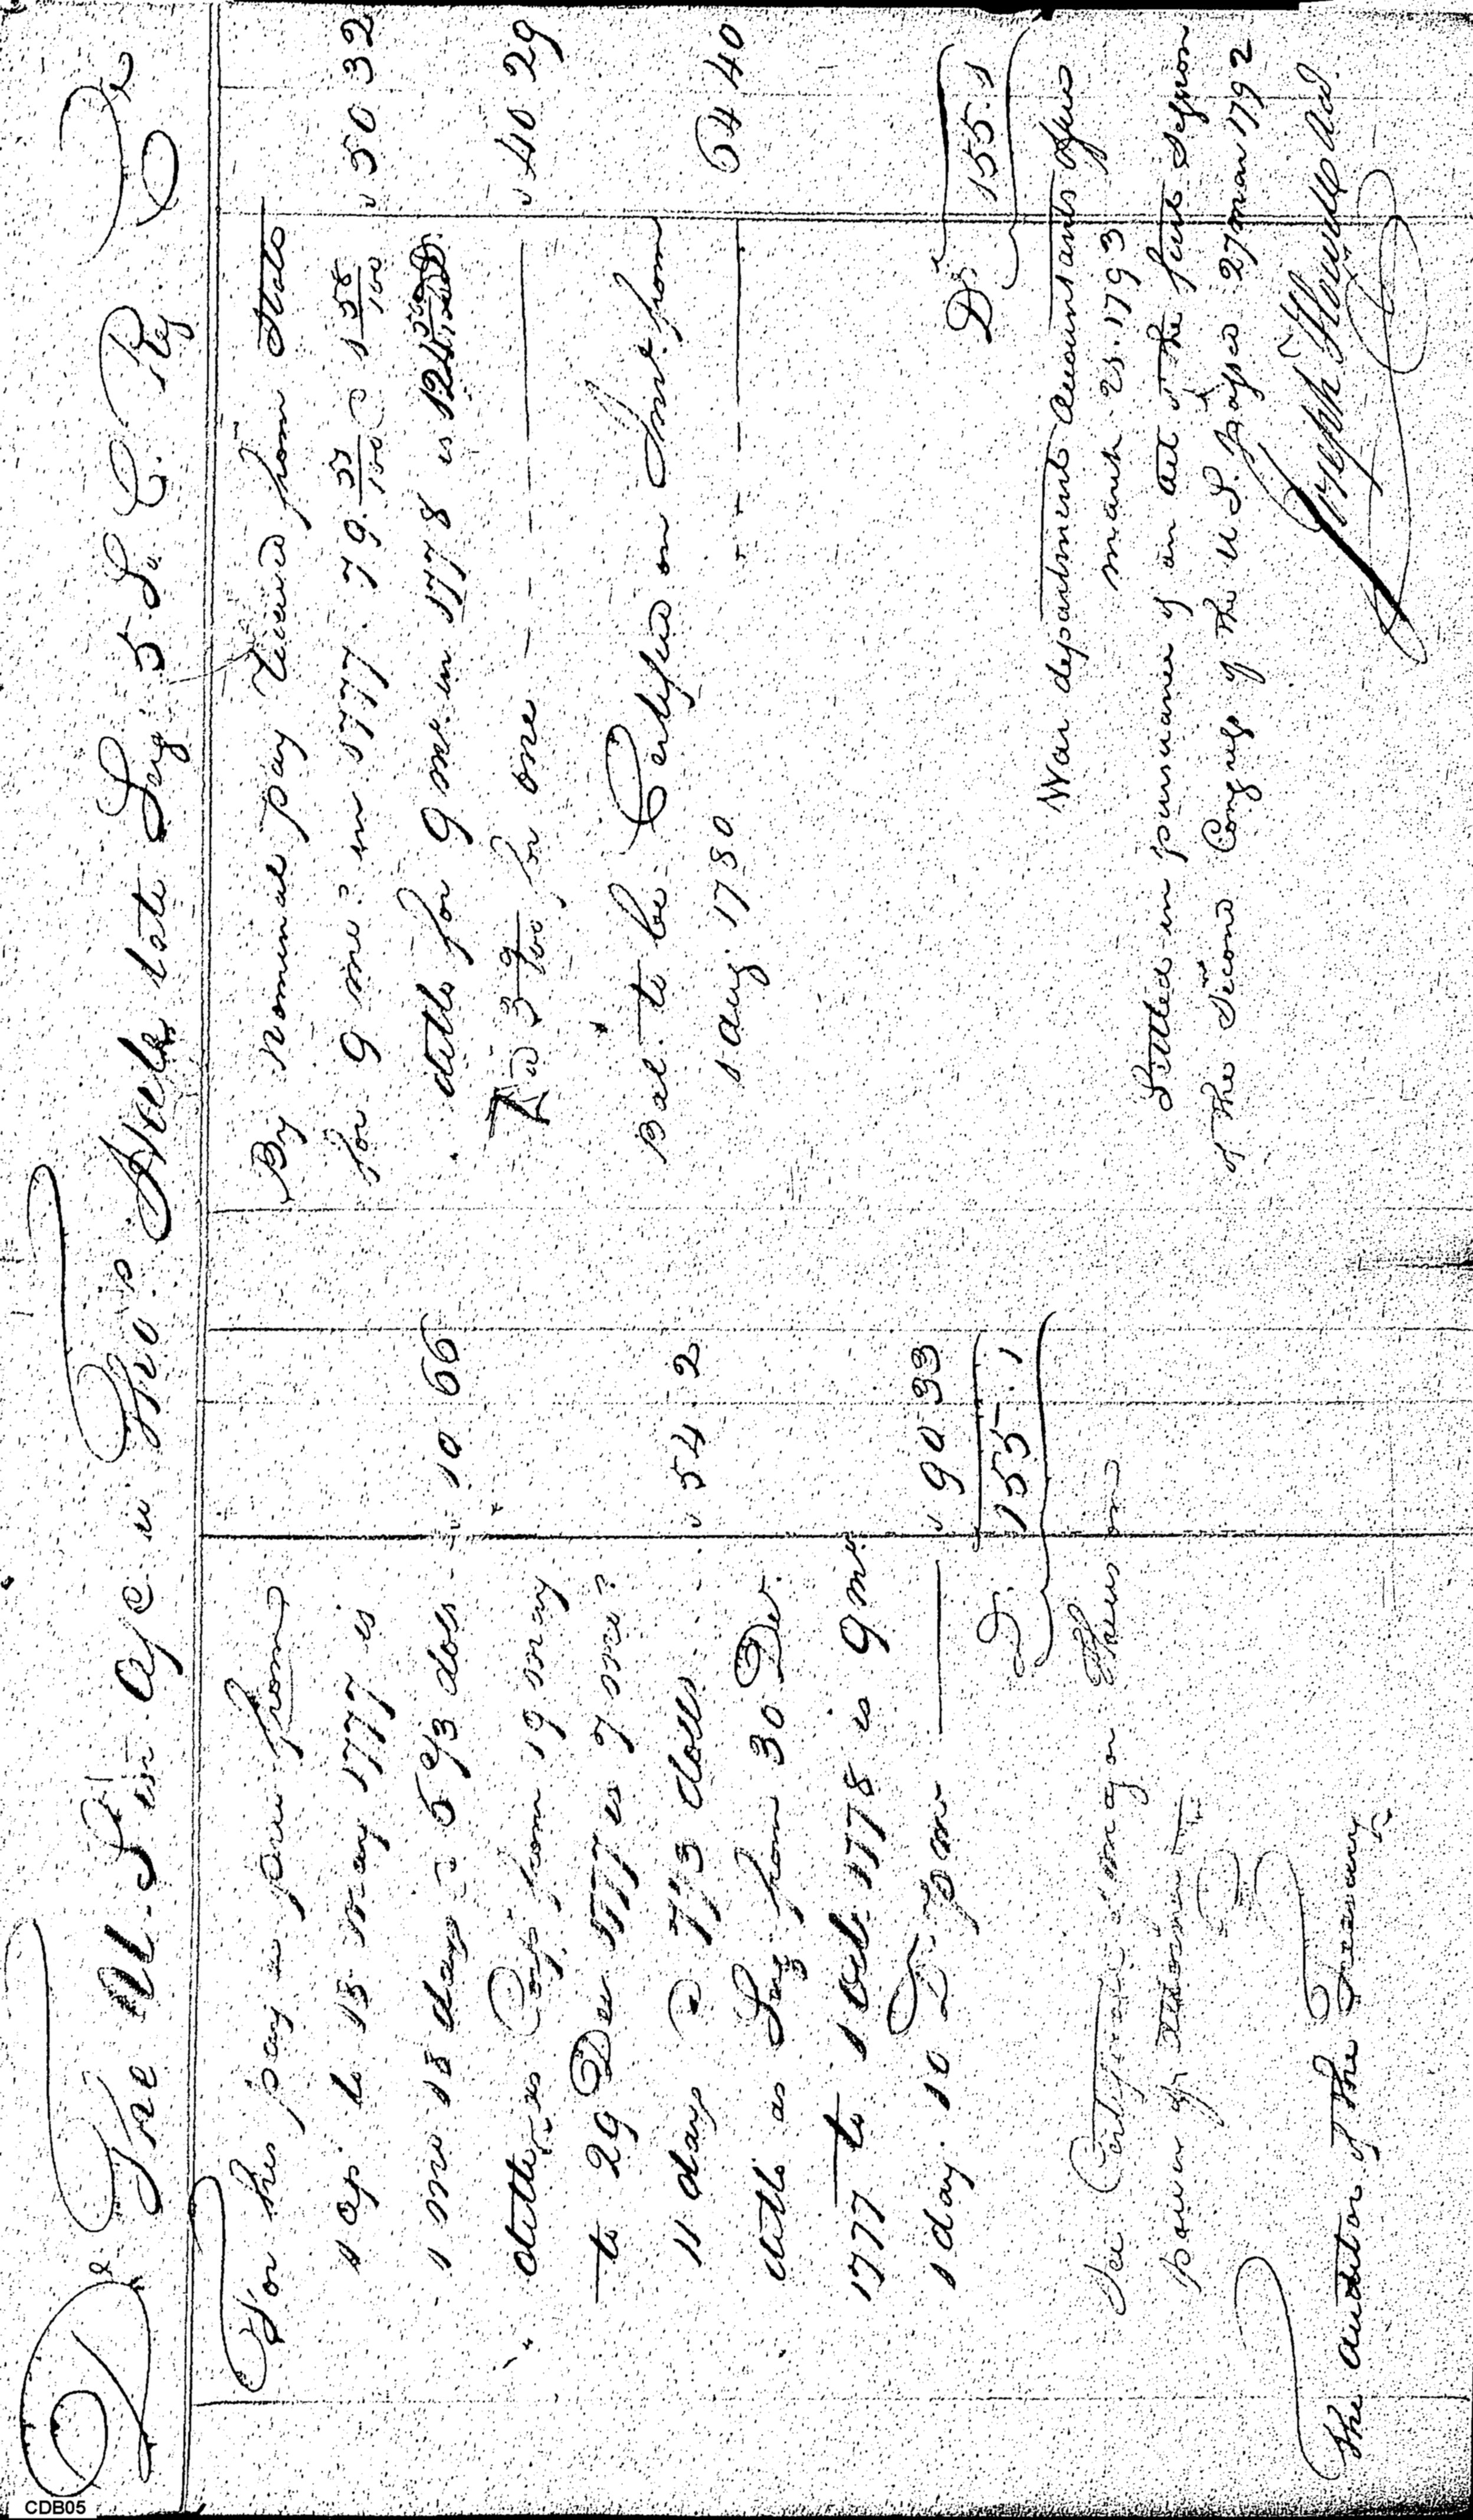 Dr The U. S. in a/c w Tho.s late Serj. 5 S. C. Reg. Cr
For his pay as priv. from
1 Ap. to 18 May 1777 is
1 mo 18 days @ 6 2/3 dolls 10 66
ditto as Corp. from 19 May
to 29 Dec 1777 is 7 mo.s
11 days @ 7 1/3 dolls 54 2
ditto as Serj. from 30 Dec.
1777 to 1 Oct. 1778 is 9 mo.
1 day. 10 D. p mo 90 33
D. 155. 1
See Certificate Major
power of attorney
The auditor of the Treasury
By nominal pay received from State
for 9 mo.s in 1777. 79. 55/100 @ 1 58/100 50 32
ditto for 9 mo. in 1778 is
@ 3 9/100 for one 40 29
Bal. to be Certified on Int. from
1 Aug. 1780 64 40
Dr. 155. 1
War department Accountants Office
March 25. 1793
Settled in pursuance of an act of the first Session
of the Second Congress of the U. S. passed 27 Mar 1792
Joseph Howell
CDB05